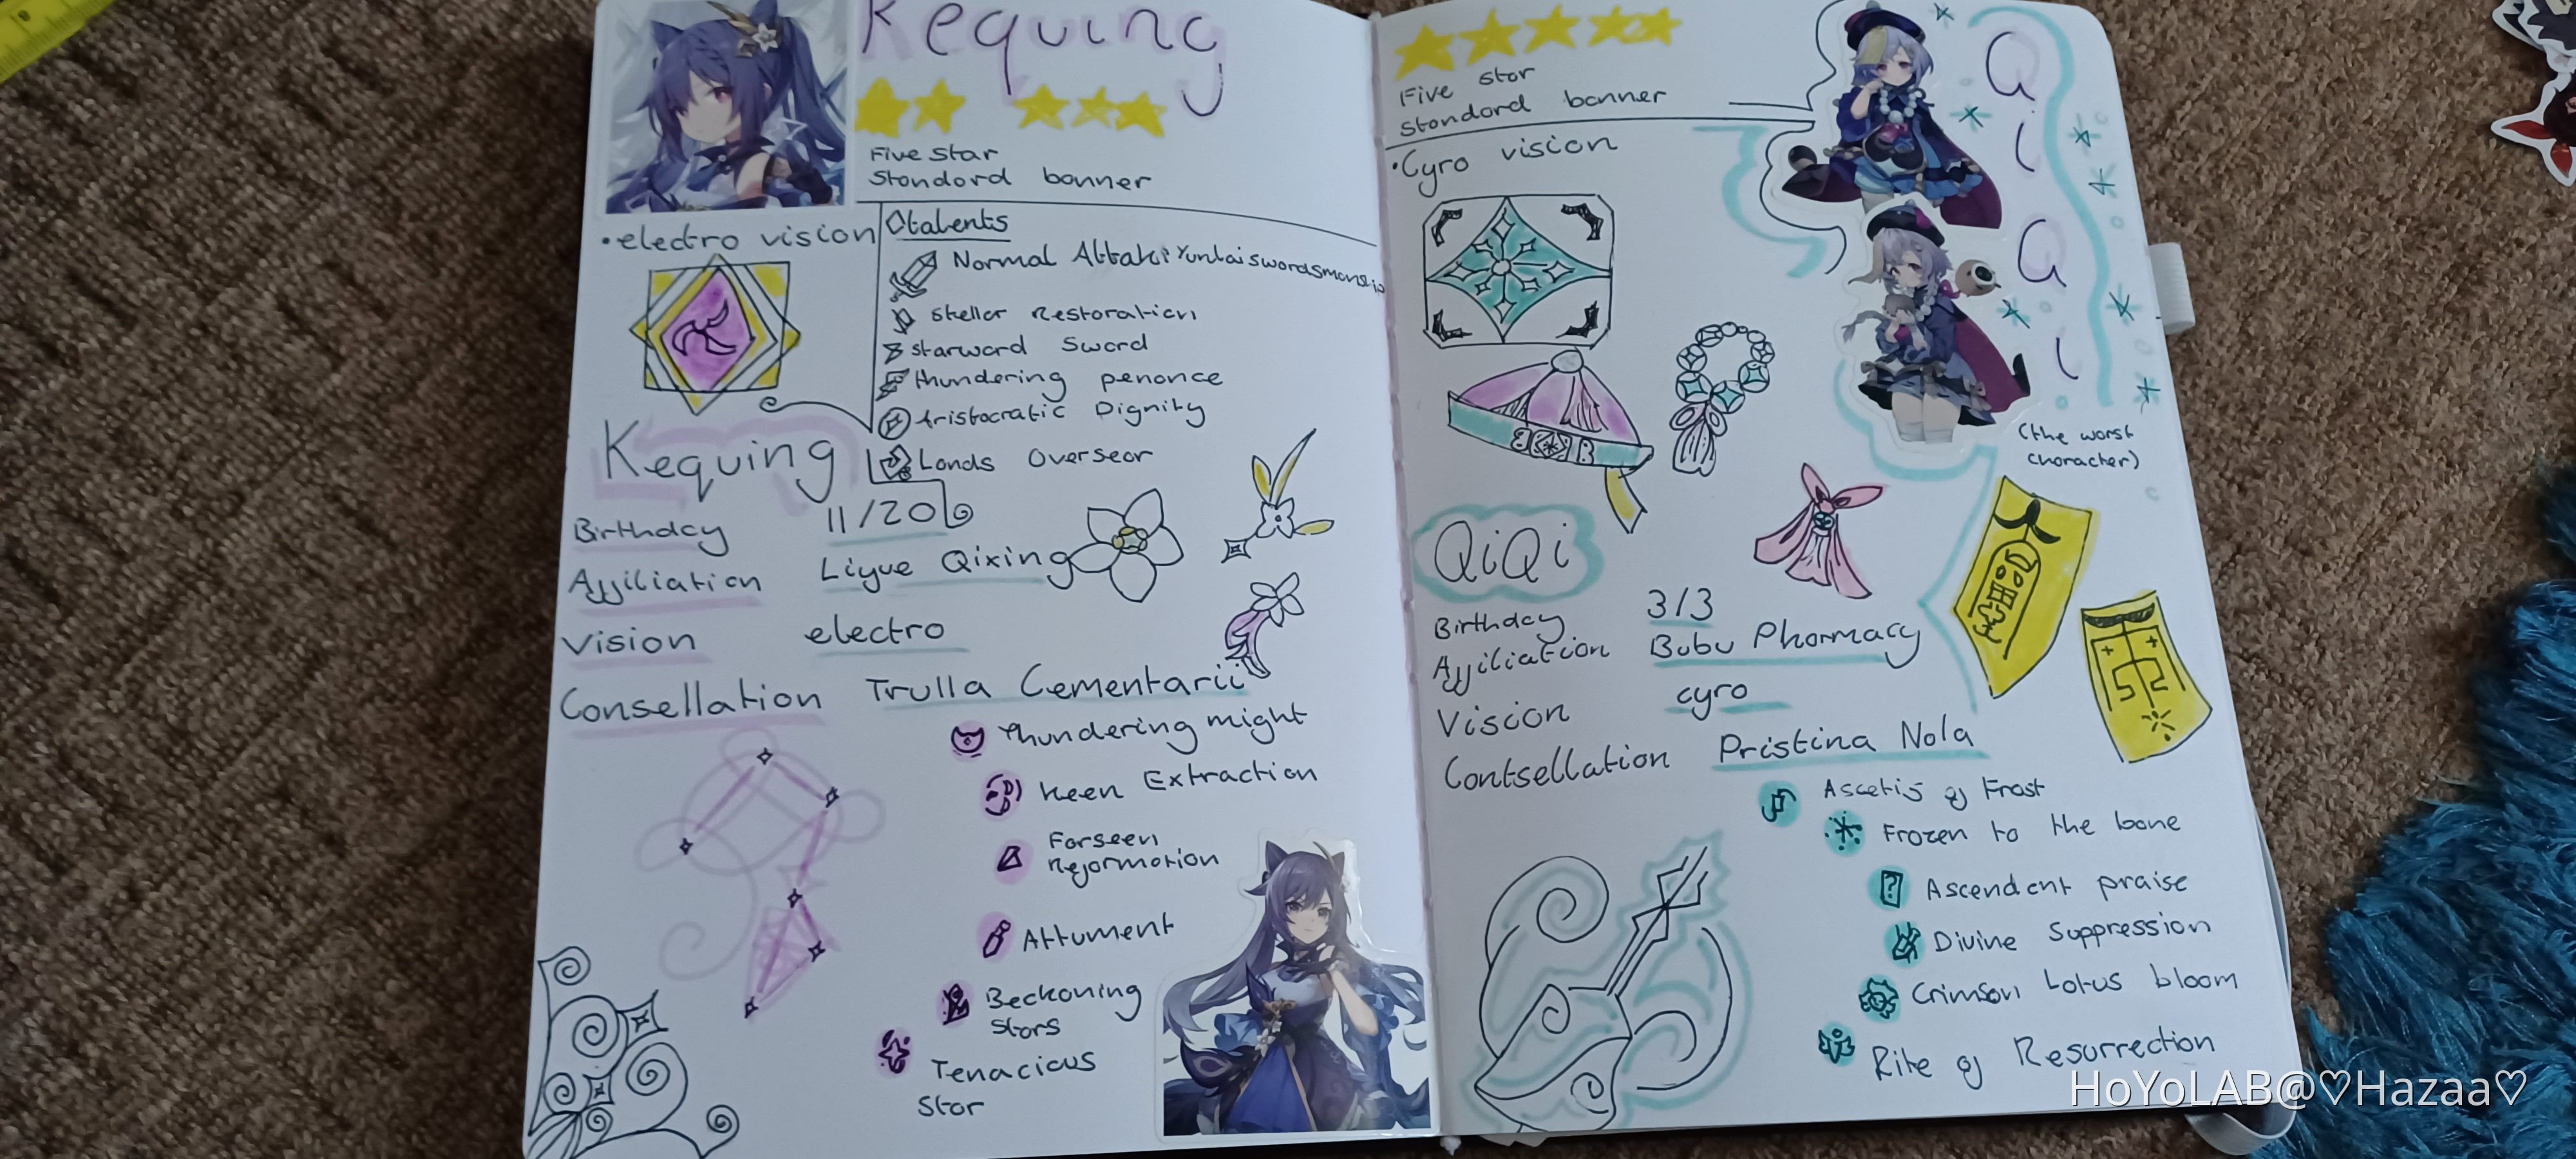 Kequing
Five Star
Standard banner
•electro vision
talents
Normal Attak: Yunlai swordsmanship
Stellar Restoration
Starward Sword
thundering penance
Aristocratic Dignity
Lands Overseer
Kequing
Birthday 11/20
Affiliation Liyue Qixing
Vision electro
Consellation Trulla Cementarii
Thundering might
Keen Extraction
Forseen
Reformation
Attument
Beckoning
Stars
Tenacious
Star
Five star
standard banner
•Cyro vision
Qi Qi
(the worst
character)
QiQi
Birthday 3/3
Affiliation Bubu Pharmacy
Vision cyro
Contsellation Pristina Nola
Ascetis of Frost
Frozen to the bone
Ascendent praise
Divine Suppression
Crimson Lotus bloom
Rite of Resurrection
HoYoLAB@♡Hazaa♡